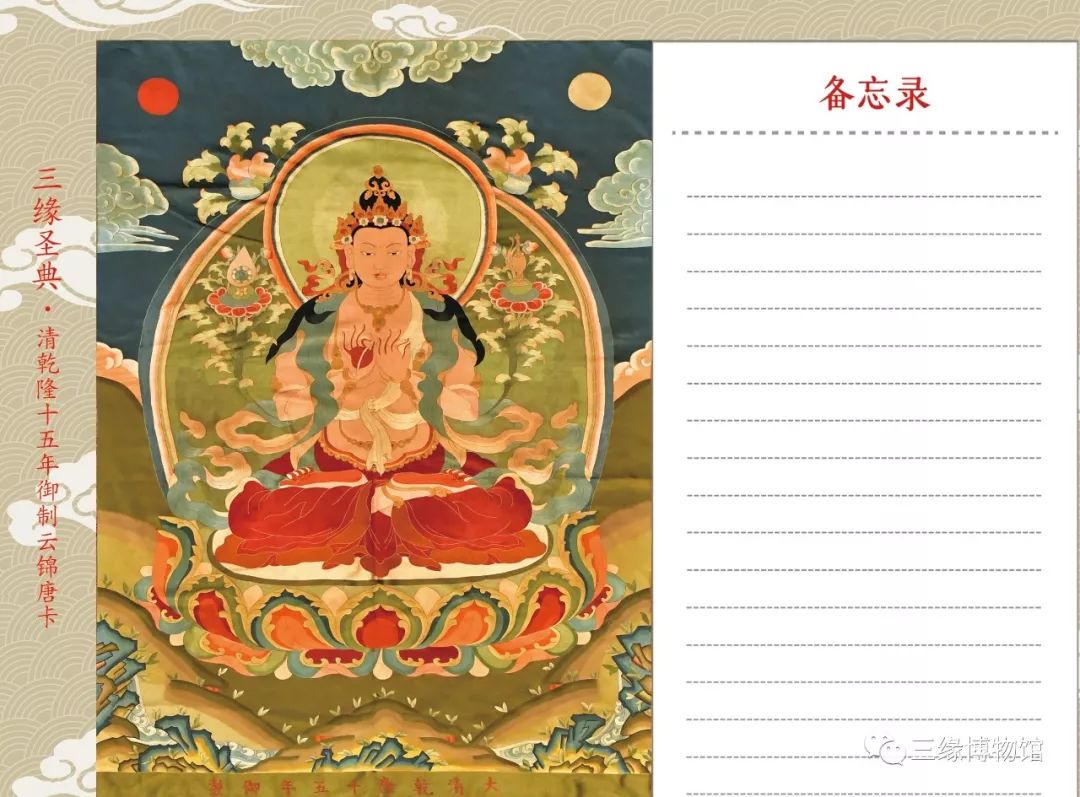 三缘圣典·清乾隆十五年御制云锦唐卡
备忘录
大清乾隆十五年御製
三缘博物馆